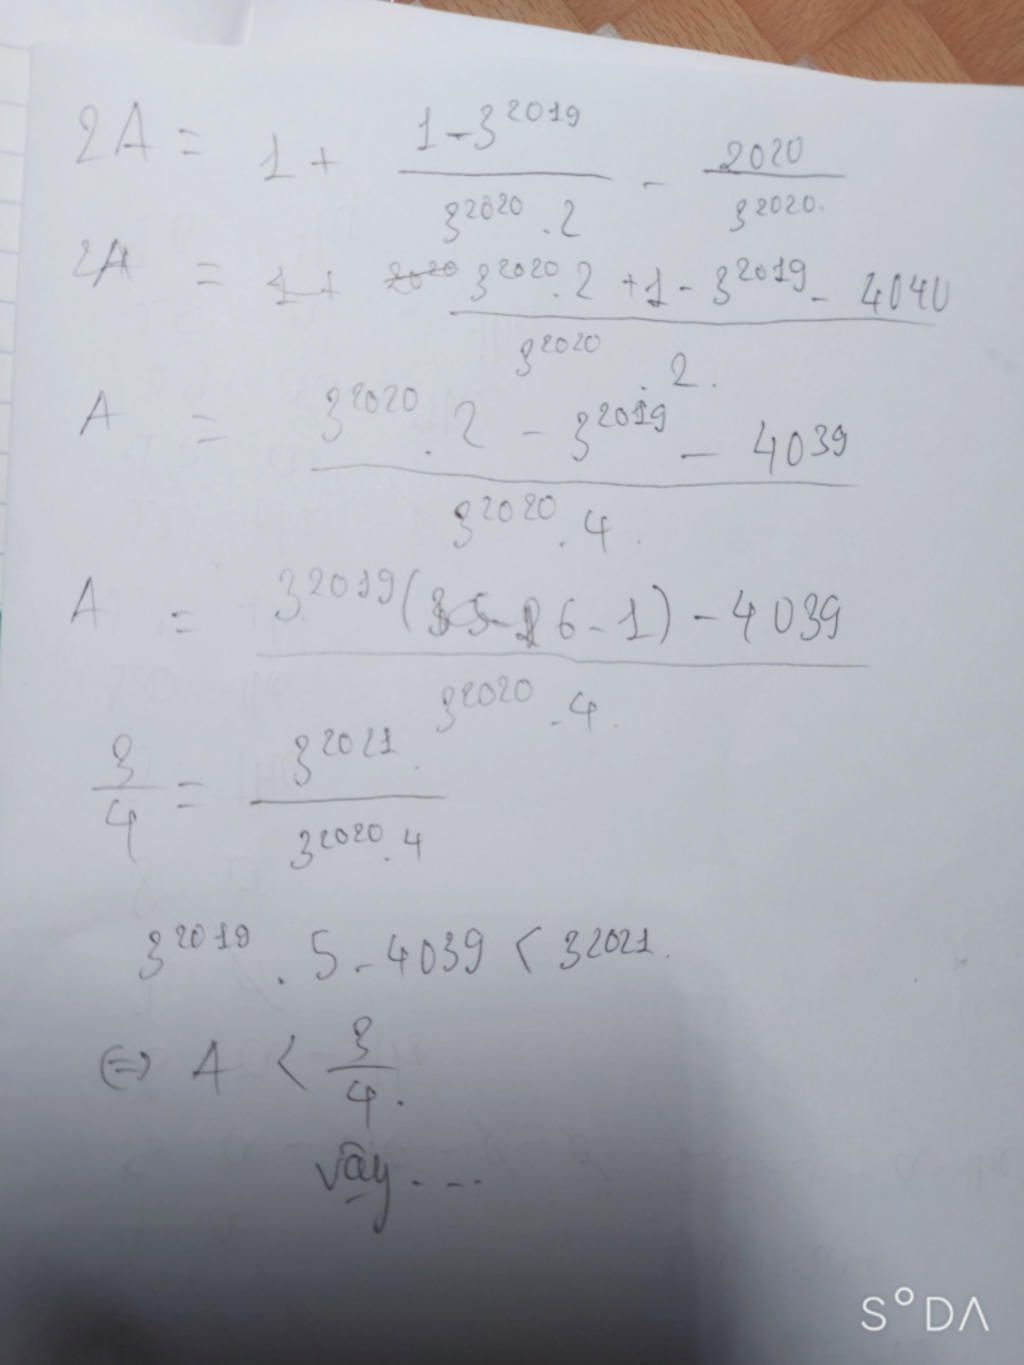 2A = 1 + \frac{1-3^{2019}}{3^{2020}.2} - \frac{2020}{3^{2020}.}
2A = \frac{3^{2020}.2+1-3^{2019}-4040}{3^{2020}.2.}
A = \frac{3^{2020}.2-3^{2019}-4039}{3^{2020}.4.}
A = \frac{3^{2019}(6-1)-4039}{3^{2020}.4.}
\frac{3}{4} = \frac{3^{2021}.}{3^{2020}.4}
3^{2019}.5-4039 < 3^{2021}.
⇔ A < \frac{3}{4}.
vậy...
S°DA